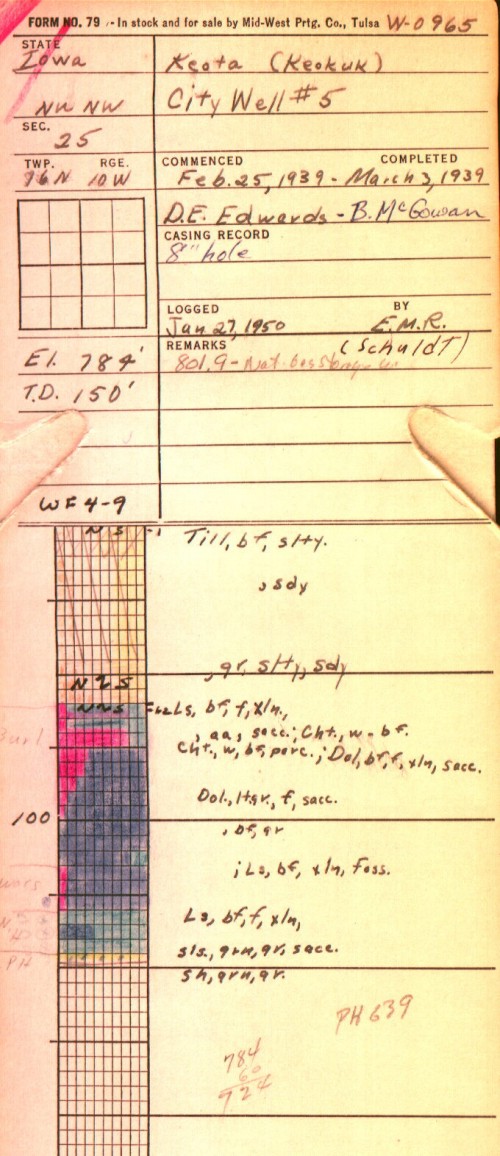 FORM NO. 79 - In stock and for sale by Mid-West Prtg. Co., Tulsa W-0965
STATE
Iowa
Keota (Keokuk)
NW NW
City Well #5
SEC.
25
TWP. RGE.
76N 10W
COMMENCED COMPLETED
Feb. 25, 1939 - March 3, 1939
D.E. Edwards - B. McGowan
CASING RECORD
8" hole
LOGGED BY
Jan 27, 1950 E.M.R.
REMARKS (Schuldt)
El. 784'
801.9 - Nat.
T.D. 150'
WF 4-9
NS -1 Till, bf, slty.
, sdy
, gr, slty, sdy
N2S
NNS Ls, bf, f, xln,
Burl.
, aa, sacc.; Cht., w-bf.
Cht., w, bf, porc.; Dol, bf, f, xln, sacc.
Dol., ltgr, f, sacc.
100
, bf, gr
; Ls, bf, xln, Foss.
Ls, bf, f, xln,
sls., grn, gr, sacc.
PH
sh, grn, gr.
PH 639
784
60
724